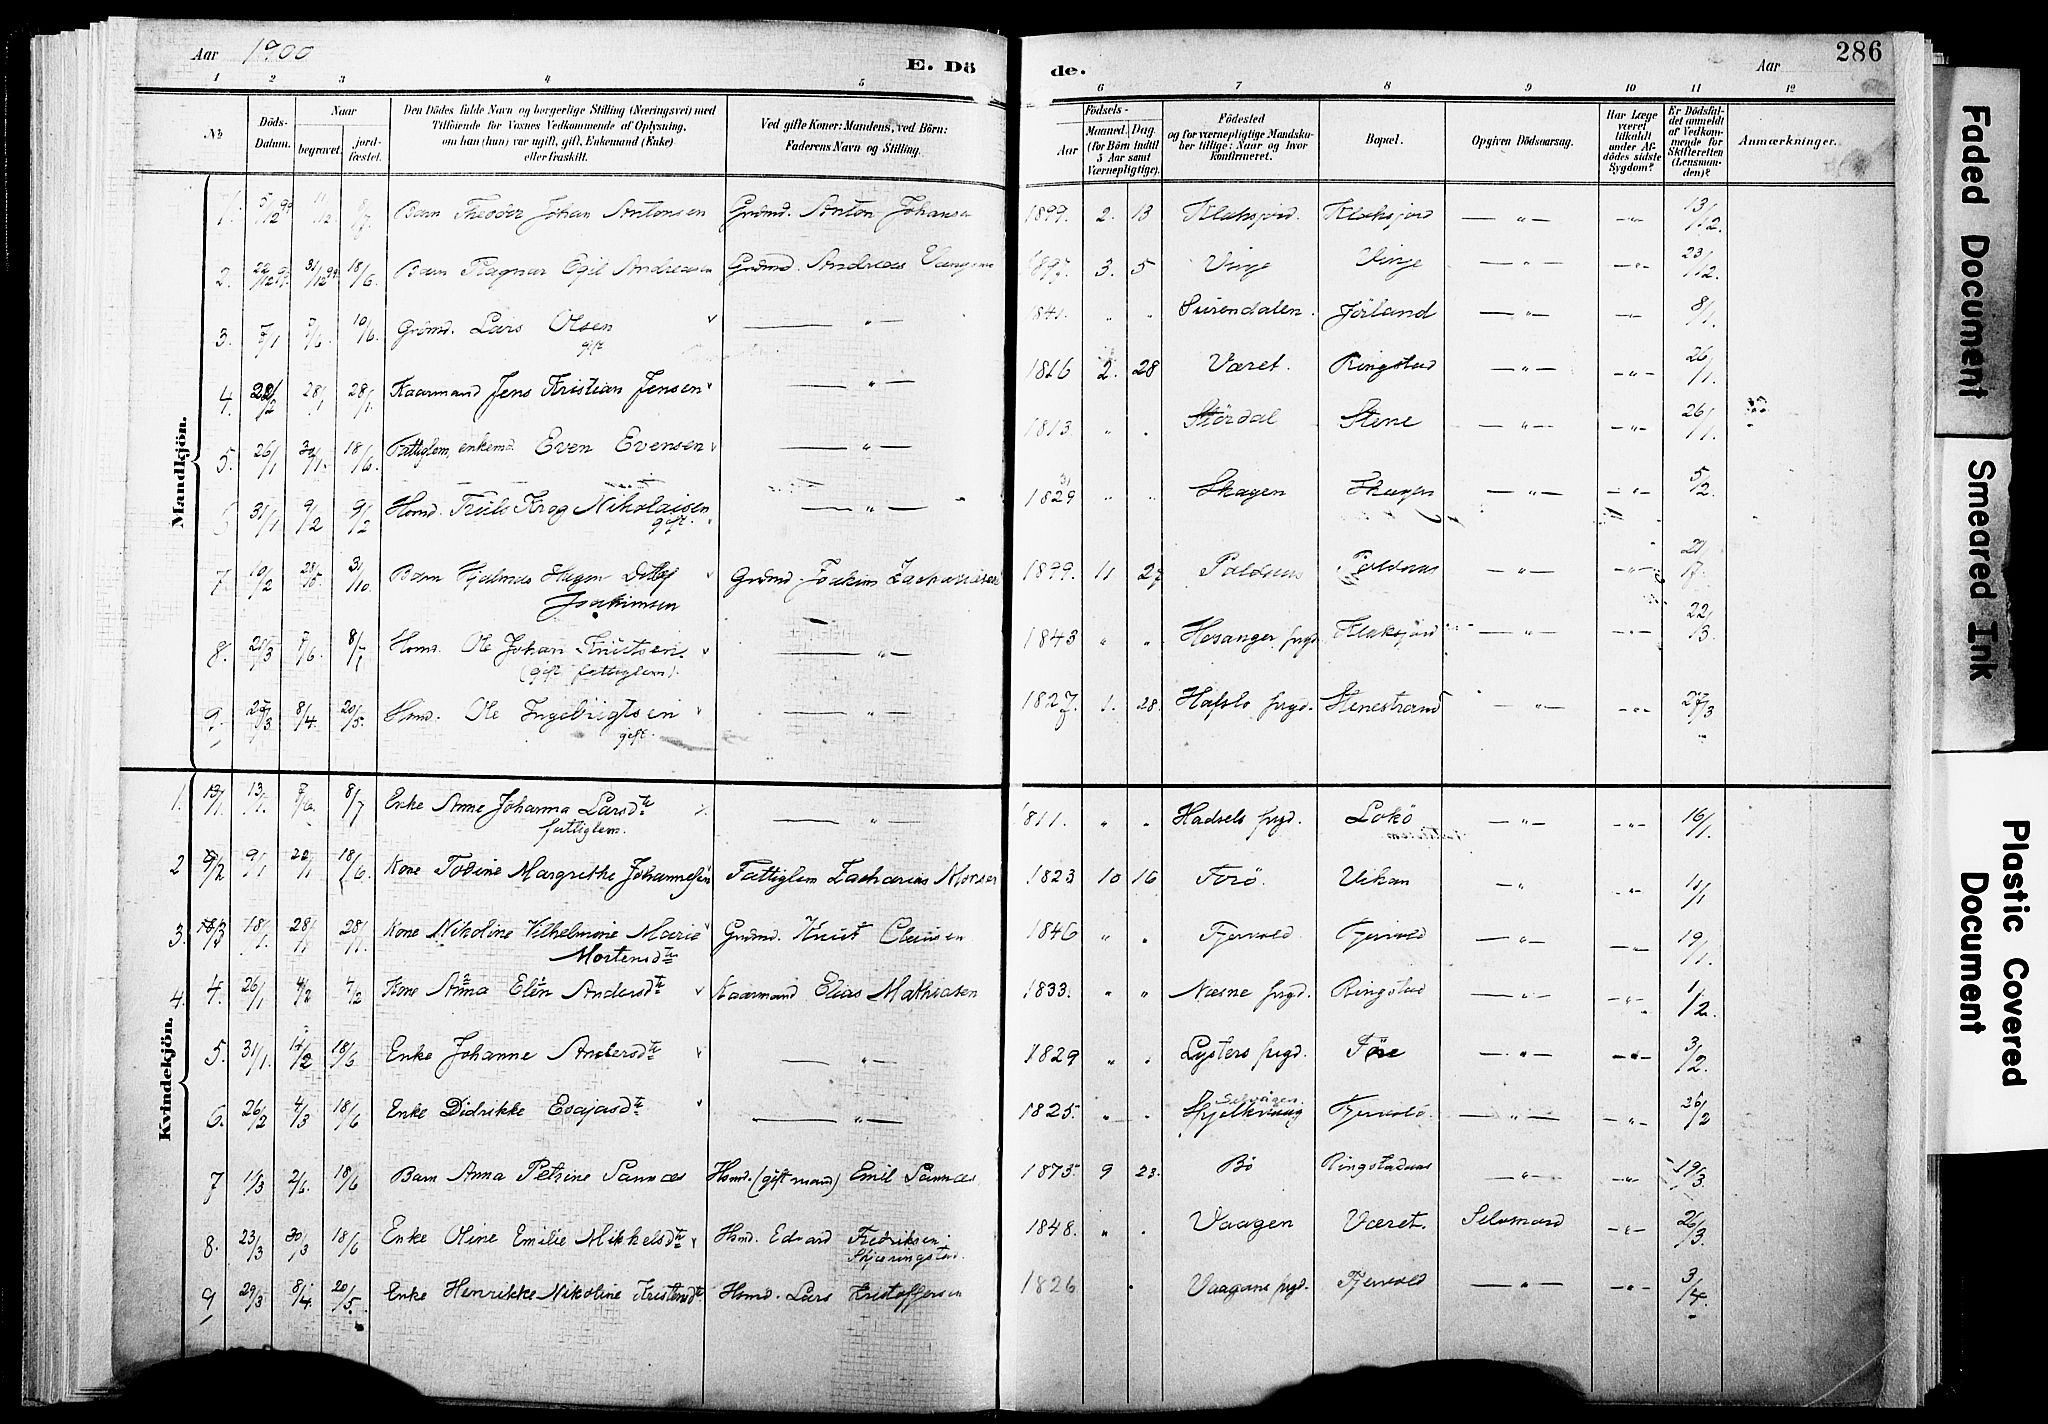 Aar 1900
E. Dö
de.
Aar
286
1 2 3 4 5 6 7 8 9 10 11 12
No
Döds-Datum.
Naar
begravet.
jord-fæstet.
Den Dödes fulde Navn og borgerlige Stilling (Næringsvei) med
Tilföiende for Voxnes Vedkommende af Oplysning,
om han (hun) var ugift, gift, Enkemand (Enke)
eller fraskilt.
Ved gifte Koner: Mandens, ved Börn:
Faderens Navn og Stilling.
Födsels-
Aar
Maaned. Dag.
(for Börn indtil
5 Aar samt
Værnepligtige).
Födested
og for værnepligtige Mandsku-
ber tillige: Naar og hvor
konfirmeret.
Bopæl.
Opgiven Dödsaarsag.
Har Læge
været
tilkaldt
under Af-
dödes sidste
Sygdom?
Er Dödsfal-
det anmeldt
af Vedkom-
mende for
Skifteretten
(Lensman-
den)?
Anmærkninger.
Mandkjön.
1. Barn Theodor Johan Antonsen Grdmd. Anton Johansen 1899. 2. 13 Klaksjord. Klaksjord — " — — " — 13/12.
2. 31/12 99 18/6. Barn Ragnar Egil Andreasen Grdmd. Andreas 3. 5 Vinje Vinje — " — — " — 23/12.
3. 7/1 7/6. 10/6. Grdmd. Lars Olsen — " — 1841. " " Surendalen. Jörland — " — — " — 8/1.
gift
4. 28/1 28/1. Kaarmand Jens Kristian Jensen — " — 1816 2. 28 Været. Ringstad — " — — " — 26/1.
5. 26/1 30/1. 18/6. Fattiglem, enkemd. Even Evensen — " — 1813. " " Stördal Stene — " — — " — 26/1.
31/1 9/2 9/2 Hsmd. Krog Nikolaisen — " — 1829 " " Skagen Skagen — " — — " — 5/2.
gift.
7. 19/2 28/5. 31/10. Barn Hjalmar Hagen Detlef Grdmd. Joakim Zachariasen 1899. 11 27 — " — — " —
Joakimsen
8. 7/6. 8/7 Hsmd. Ole Johan Knutsen. — " — 1843 " " Hosanger prgd. Klaksjord — " — — " —
(gift fattiglem).
9. 27/3 8/4. 20/5. Hsmd. Ole Ingebrigtsen — " — 1827 1. 28. Hafslo prgd. Stenestrand — " — — " — 27/3
gift.
Kvindekjön.
1. 13/1. 7/6. 8/7 Enke Anne Johanna Larsdtr — " — 1811. " " Hadsels prgd. Lokö — " — — " — 16/1.
fattiglem.
2 9/1 20/1 18/6. Kone Tobine Margrethe Johannesen Fattiglem Zacharias 1823 10 16 Forö. Vikan — " — " — 11/1
3. 18/1. 28/1 28/1. Kone Nikoline Vilhelmine Marie Grdmd. Knut Clausen 1846 " " Fjervold Fjervold — " — — " — 19/1.
Mortensdtr
4. 4. 26/1 4/2 4/2 Kone Anna Elen Andersdtr Kaarmand Elias Mathiasen 1833. " " Næsne prgd. Ringstad — " — — " — 1/2.
5. 31/1. 14/2 18/6 Enke Johanne Andersdtr — " — 1829 " " Lysters prgd. Före — " — — " — 3/2.
6. 26/2 4/3 18/6 Enke Didrikke Esajasdtr — " — 1825. " " Fjervold. — " — — " — 26/2
7 1/3 2/6. 18/6 Barn Anna Petrine Sannæs Hsmd. (gift mand) Emil Sannæs 1873 9 23. Bö Ringstadaas — " — — " — 19/3.
8. 23/3 30/3 18/6 Enke Oline Emilie Mikkelsdtr Hsmd. Edvard Fredriksen 1848. " " Vaagen Været. Selvmord — " — 26/3.
Skjæringstad.
9 29/3 8/4. 20/5. Enke Henrikke Nikoline Kristensdtr. Hsmd. Lars Kristoffersen 1826 " Vaagans prgd. Fjervold — " — — " — 3/4.
Faded Document
Smeared Ink
Plastic Covered
Document